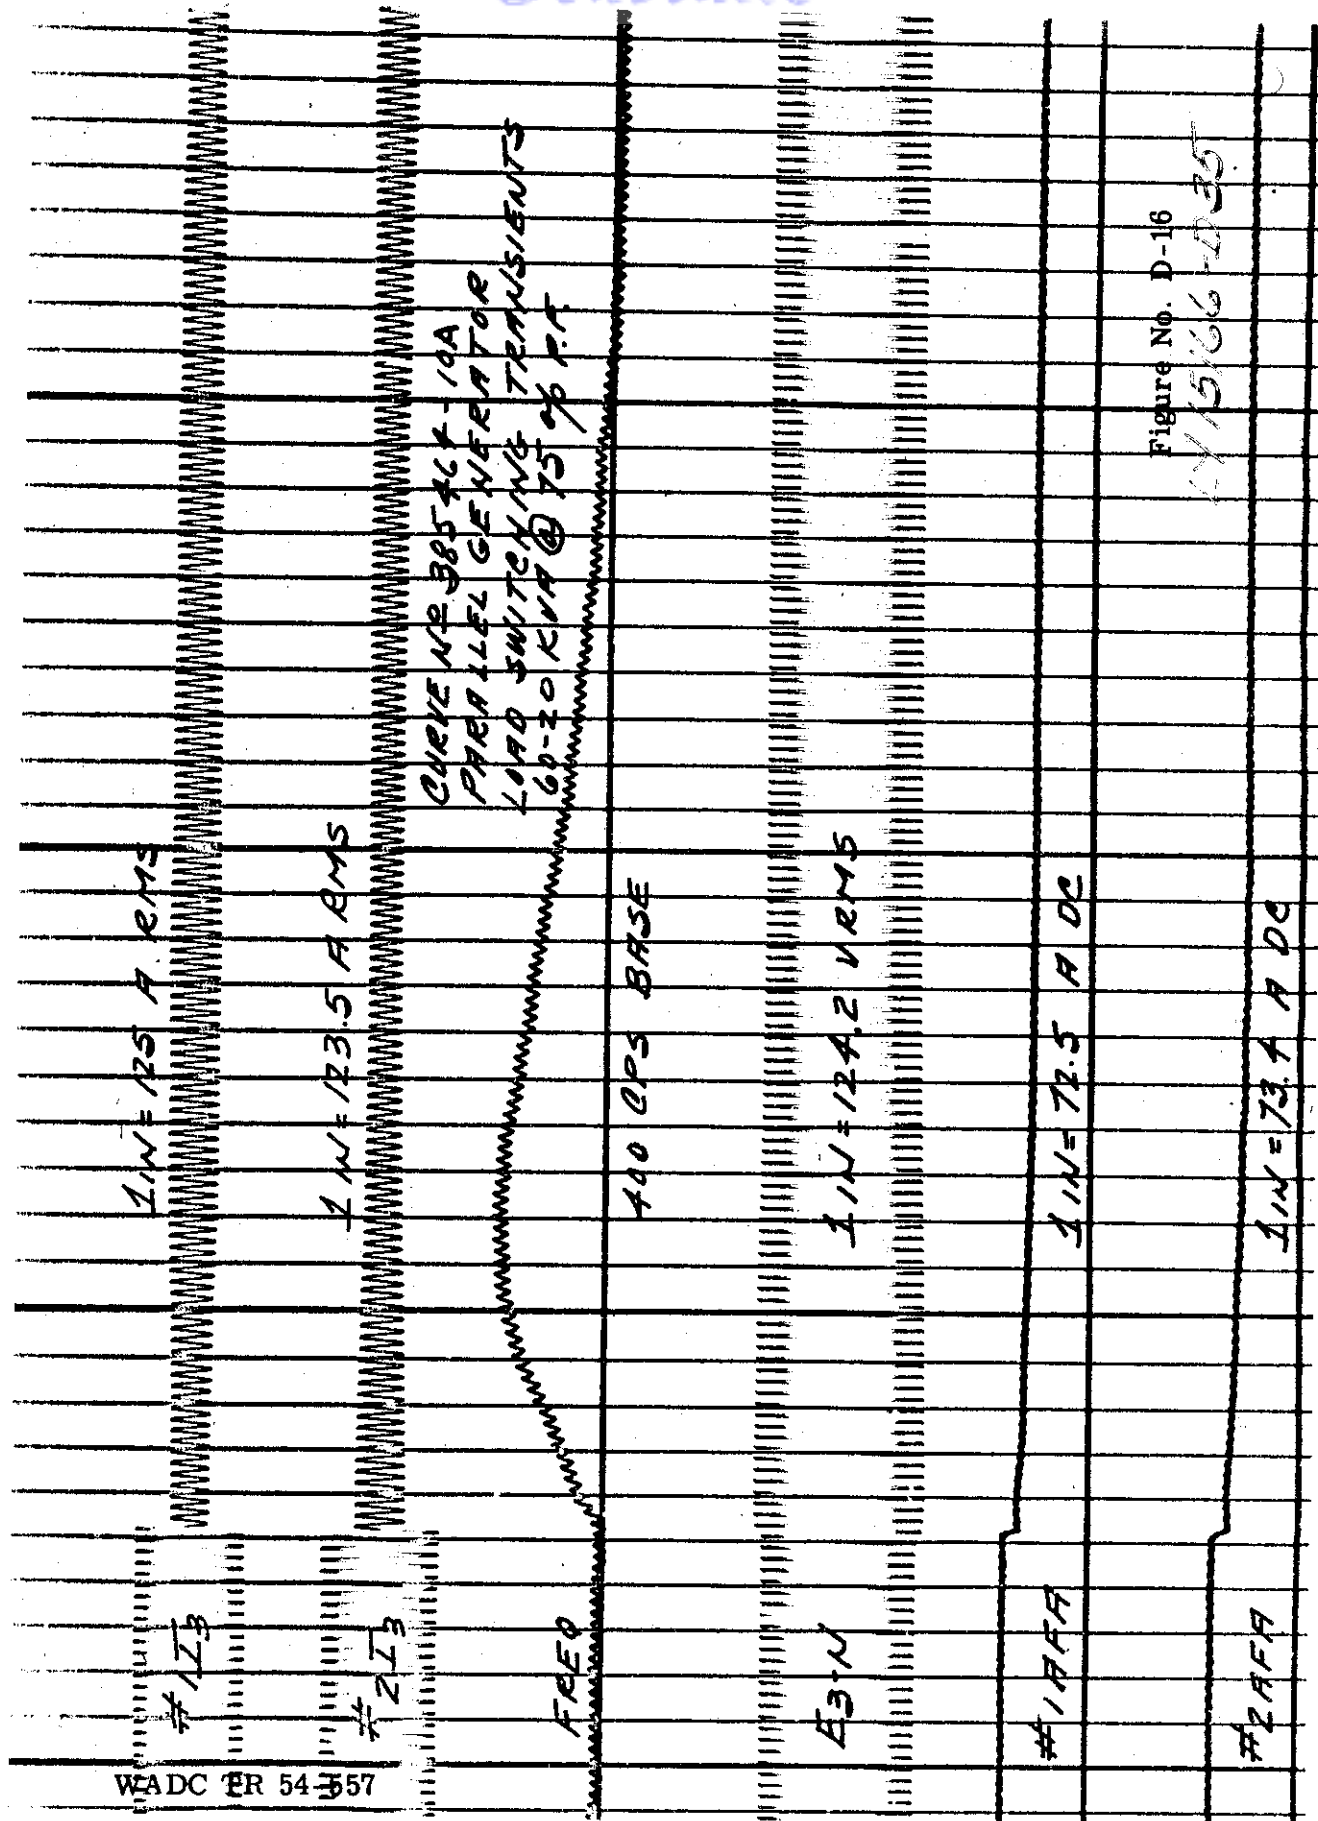 #1 I3
1 IN = 125 A RMS
#2 I3
1 IN = 123.5 A RMS
CURVE Nº 385464-10A
PARALLEL GENERATOR
LOAD SWITCHING TRANSIENTS
60-20 KVA @ 75 % P.F.
FREQ
400 CPS BASE
E3-N
1 IN = 124.2 V RMS
#1 AFA
1 IN = 72.5 A DC
#2 AFA
1 IN = 73.4 A DC
Figure No. D-16
WADC TR 54-557